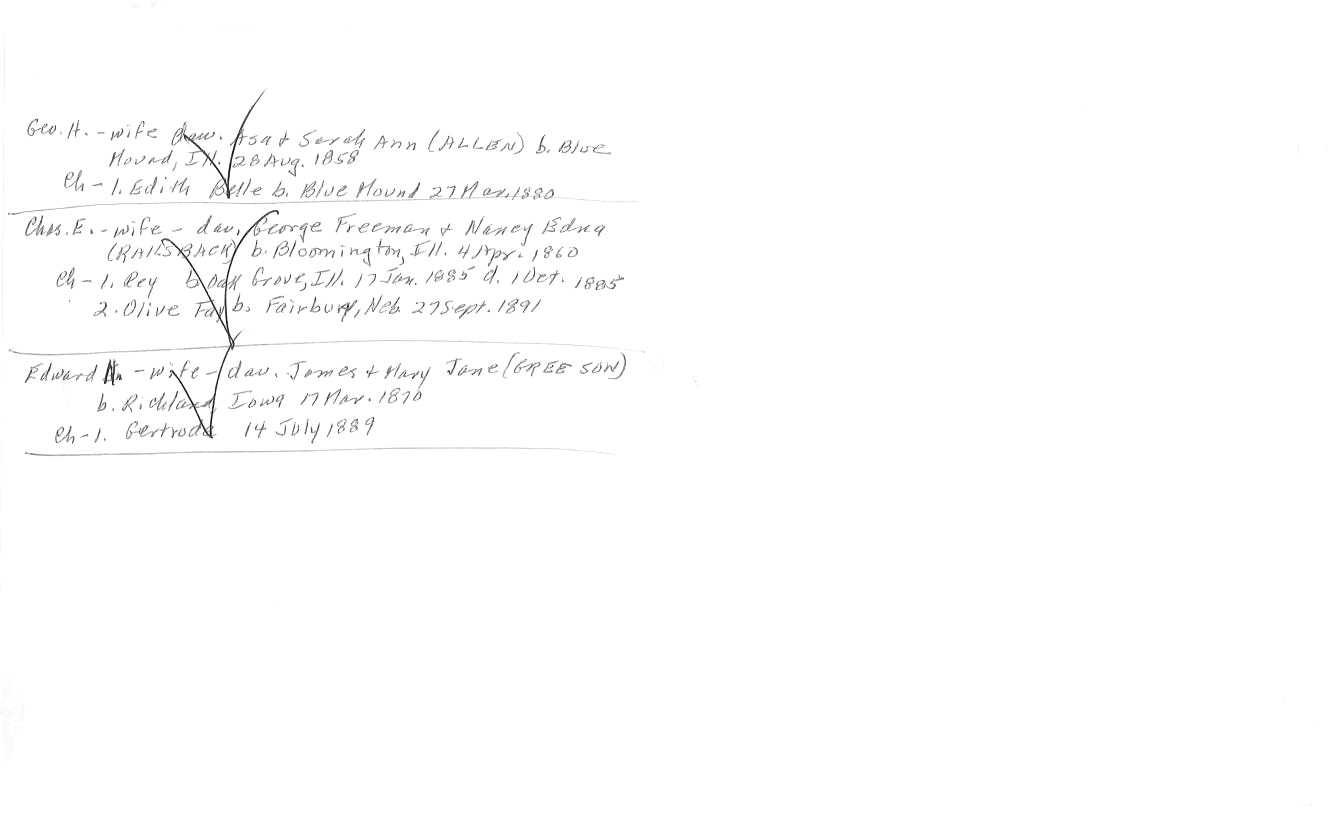 Geo. H. - wife dau. Asa & Sarah Ann (ALLEN) b. Blue
Mound, Ill. 28 Aug. 1858
Ch - 1. Edith Belle b. Blue Mound 27 Mar. 1880
Chas. E. - wife - dau. George Freeman & Nancy Edna
(RAILSBACK) b. Bloomington, Ill. 4 Apr. 1860
Ch - 1. Rey b. Oak Grove, Ill. 17 Jan. 1885 d. 1 Oct. 1885
2. Olive Fay b. Fairbury, Neb. 27 Sept. 1891
Edward - wife - dau. James & Mary Jane (GREESON)
b. Richland, Iowa 17 Mar. 1870
Ch - 1. Gertrude 14 July 1889